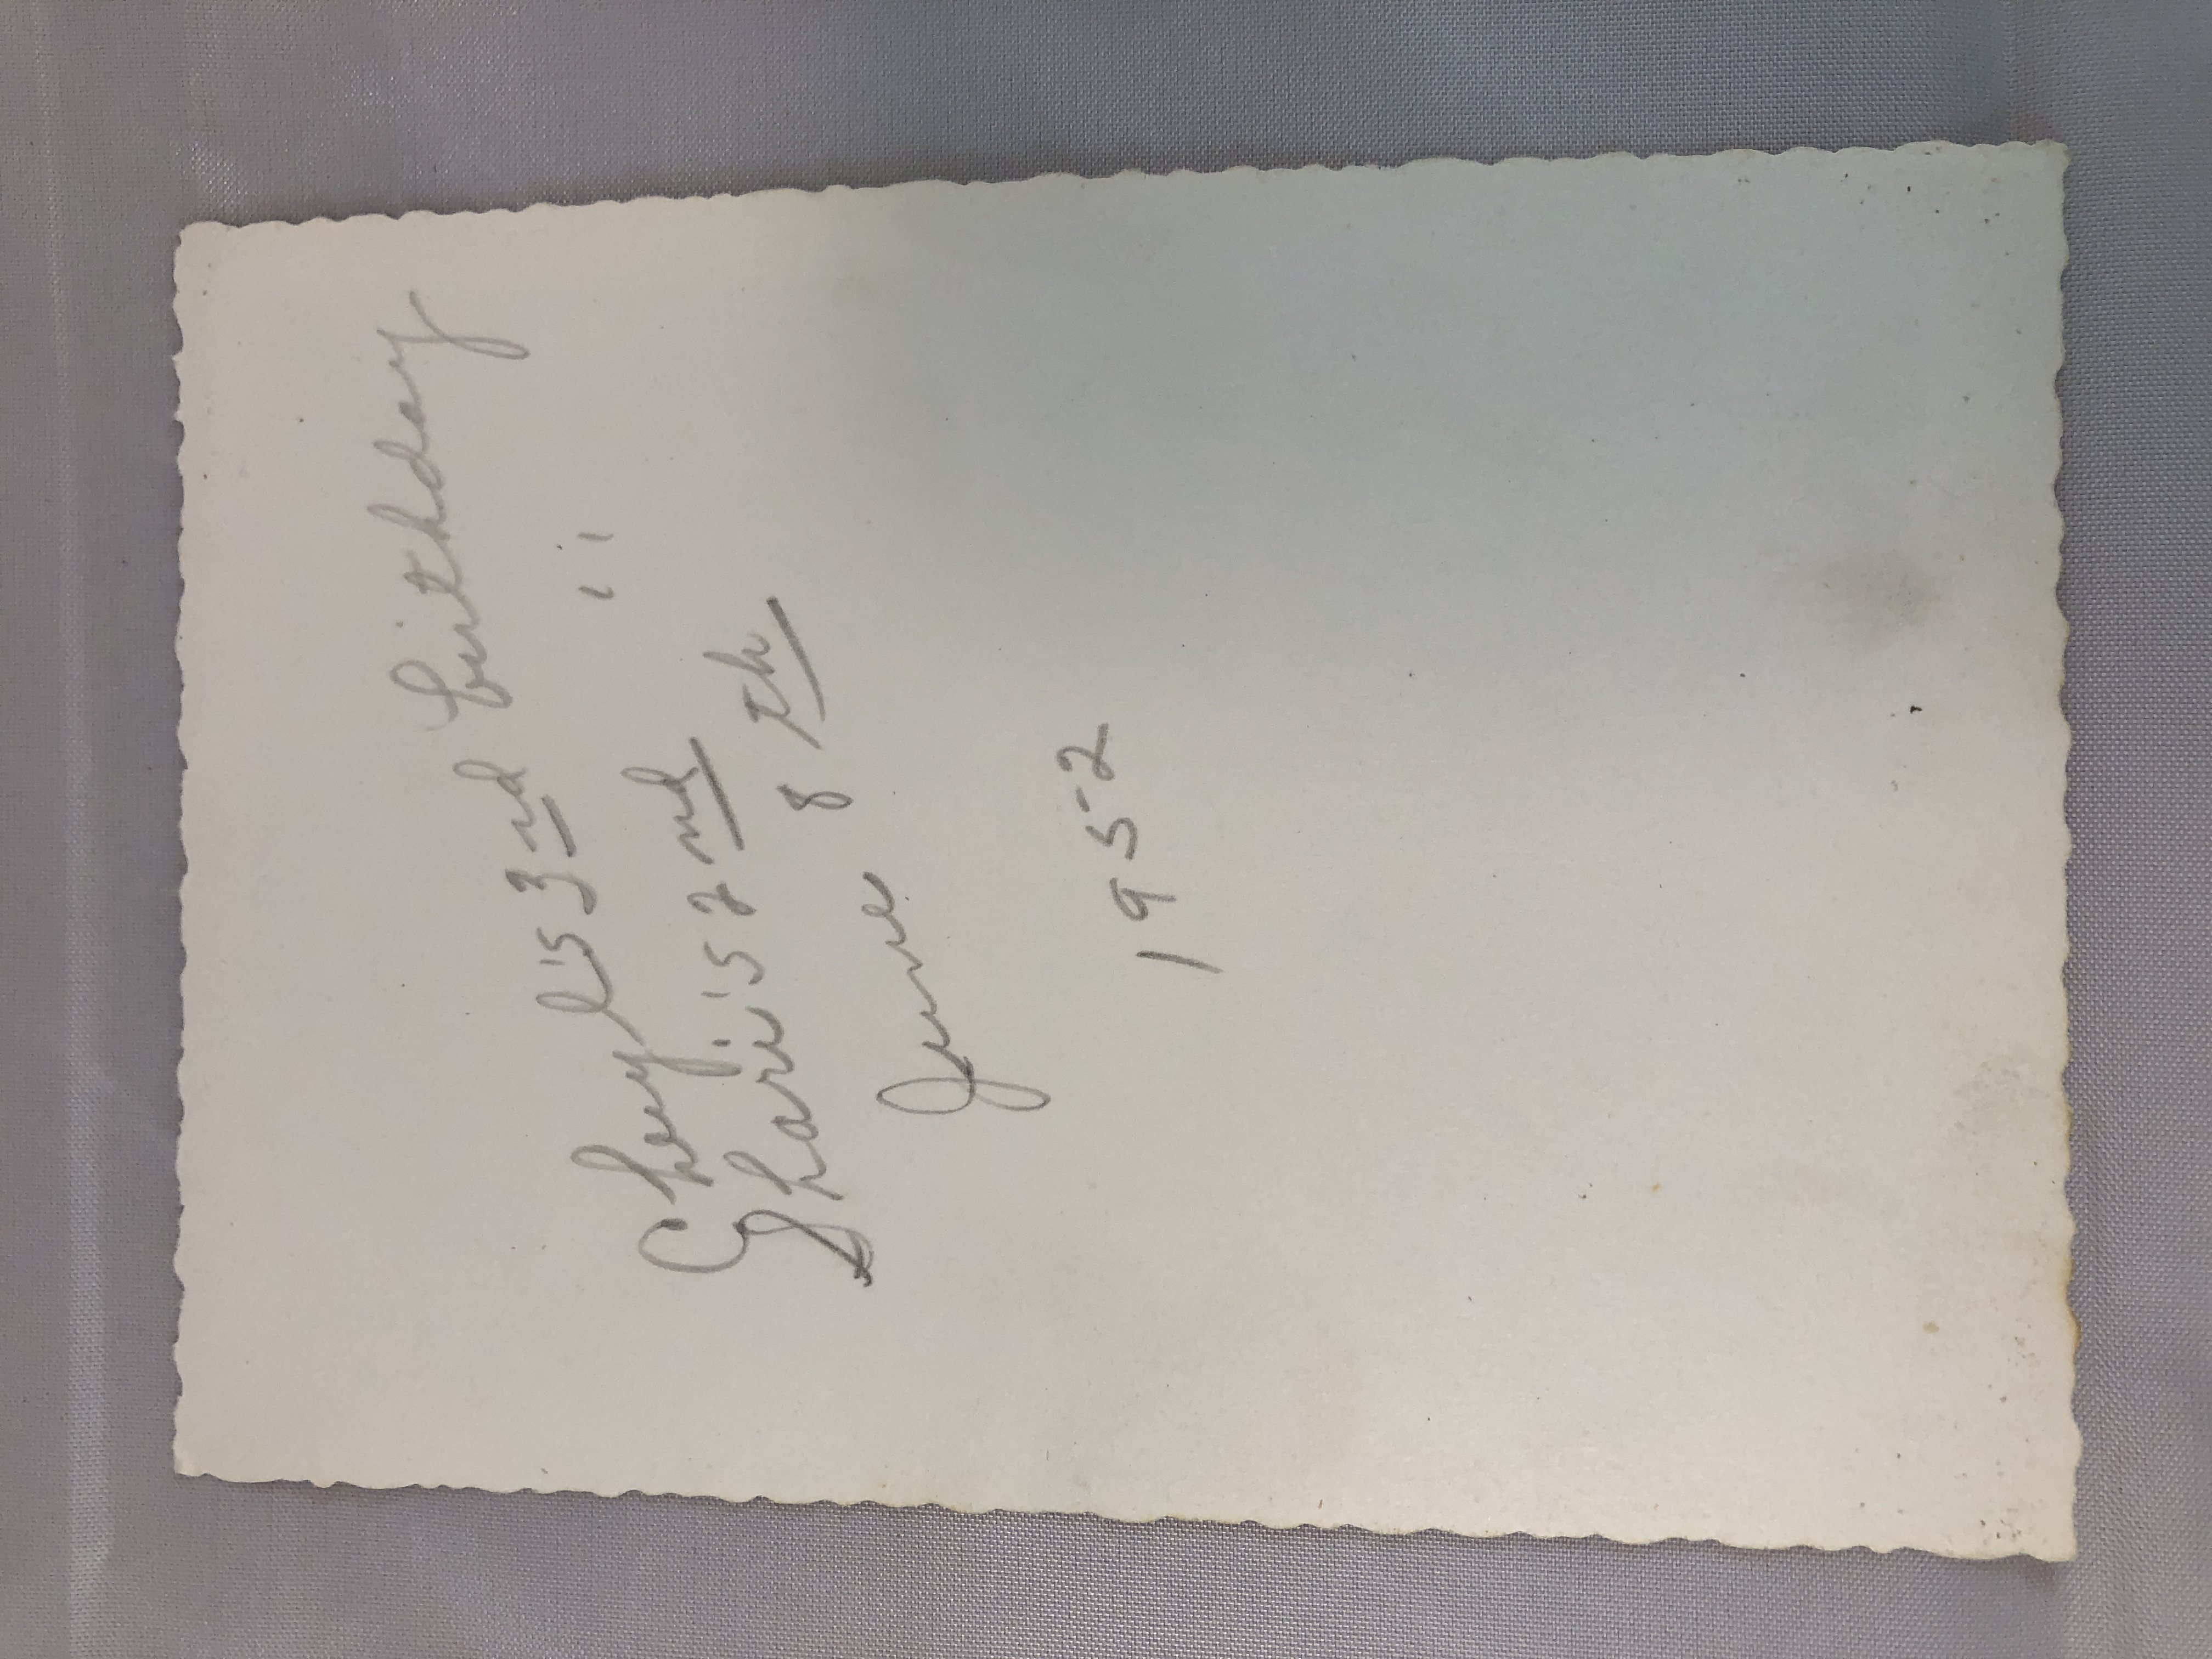 Cheryl's 3rd birthday
Shari's 2nd "
June 8th
1952